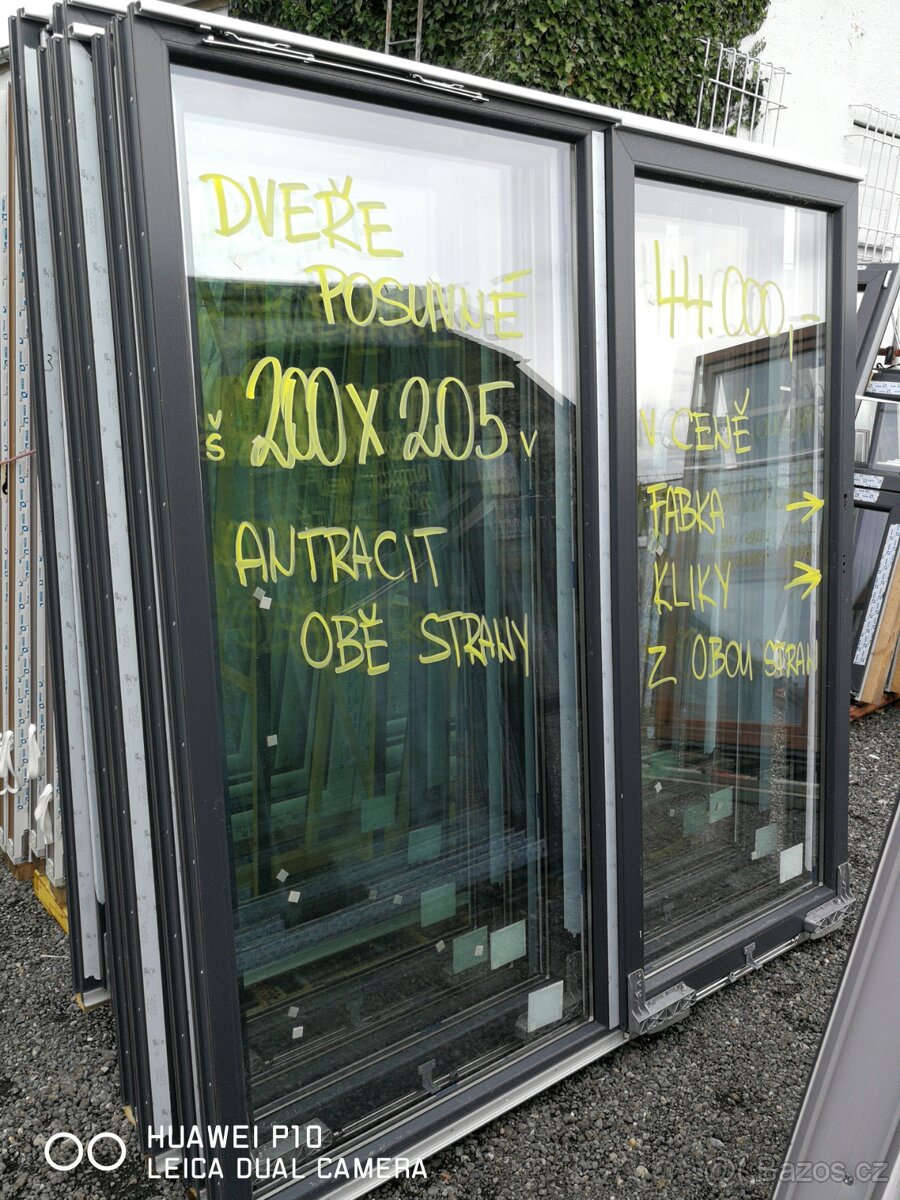 DVEŘE
POSUVNÉ
š 200 X 205 v
ANTRACIT
OBĚ STRANY
44.000,-
V CENĚ
FABKA →
KLIKY →
Z OBOU STRAN
HUAWEI P10
LEICA DUAL CAMERA
Bazos.cz